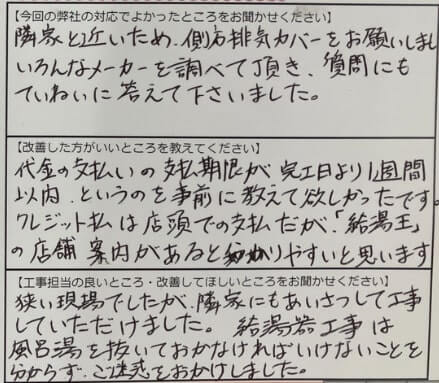 【今回の弊社の対応でよかったところをお聞かせください】
隣家と近いため、側方排気カバーをお願いしまし
いろんなメーカーを調べて頂き、質問にも
ていねいに答えて下さいました。
【改善した方がいいところを教えてください】
代金の支払いの支払期限が完工日より1週間
以内、というのを事前に教えて欲しかったです。
クレジット払は店頭での支払だが、「給湯王」
の店舗案内があると分かりやすいと思います
【工事担当の良いところ・改善してほしいところをお聞かせください】
狭い現場でしたが、隣家にもあいさつして工事
していただけました。 給湯器工事は
風呂湯を抜いておかなければいけないことを
分からず、ご迷惑をおかけしました。